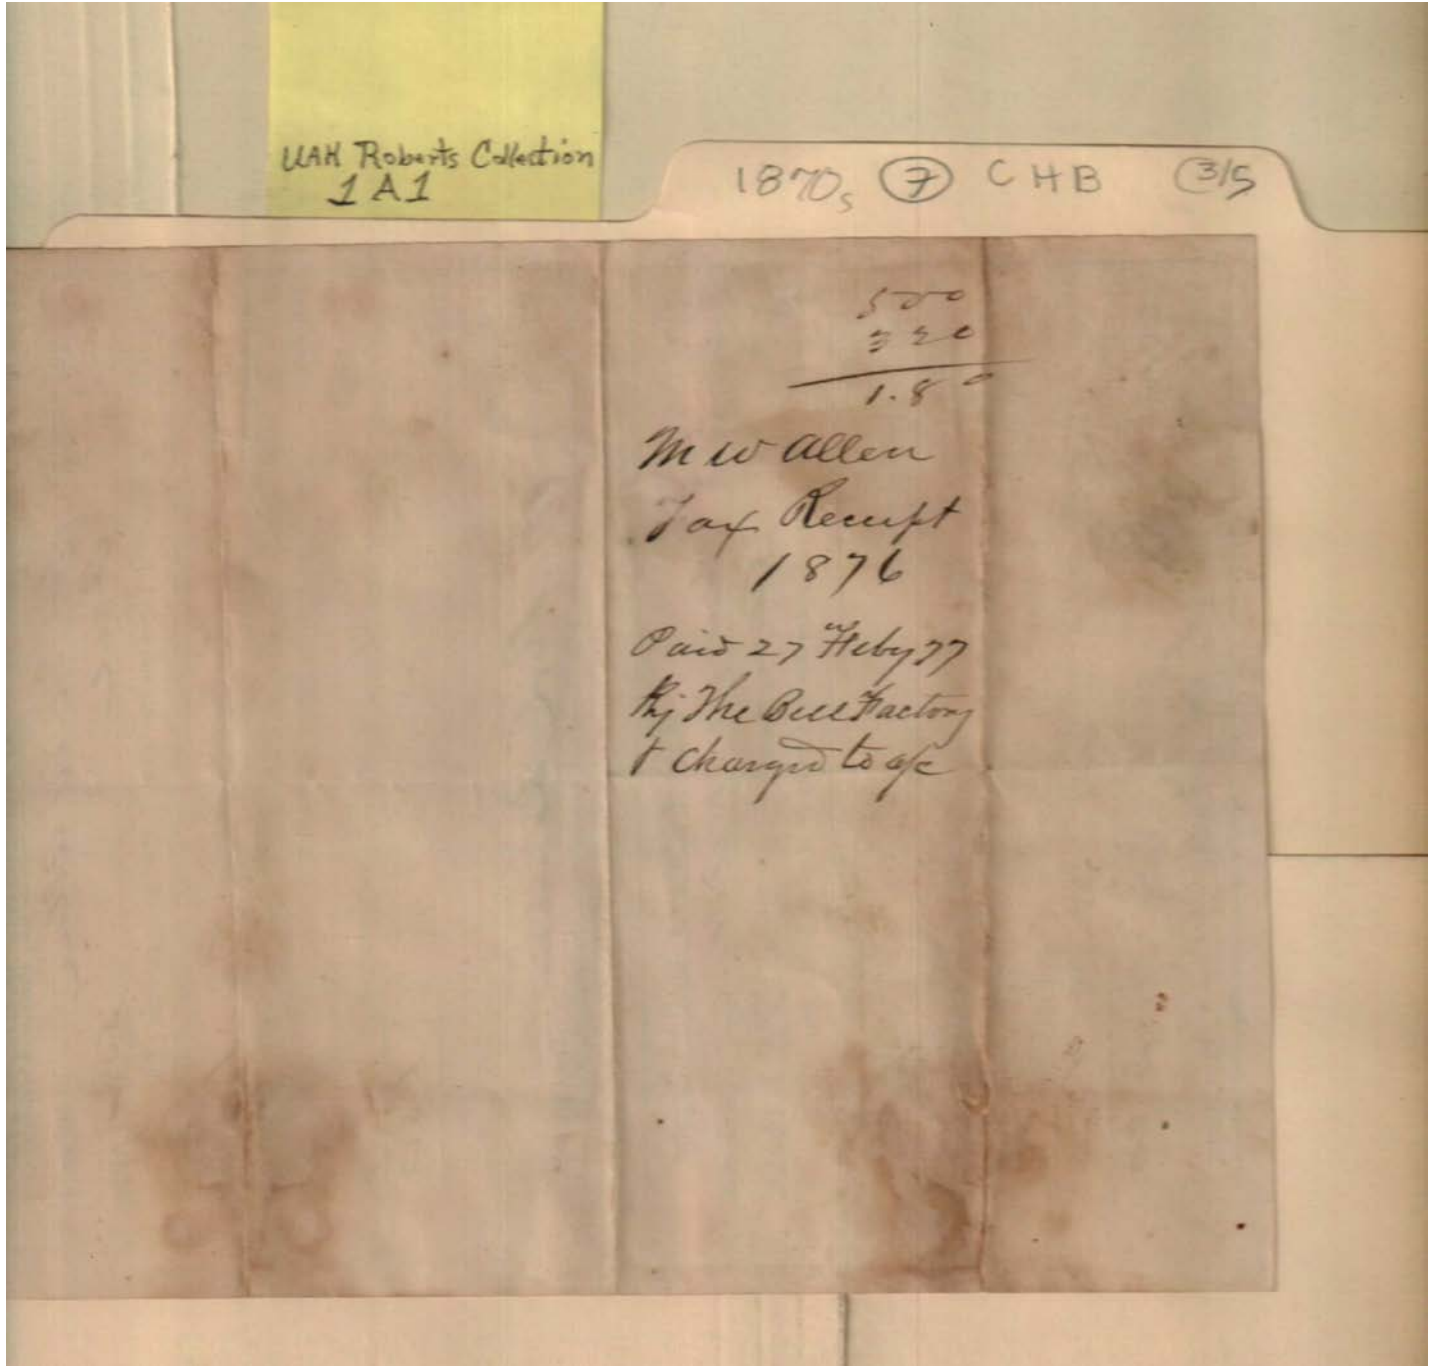 UAH Roberts Collection
1A1
1870s 7 CHB 3/5
500
320
1.80
M W Allen
Tax Receipt
1876
Paid 27 Feby 77
By The Bell Factory
& Charged to a/c